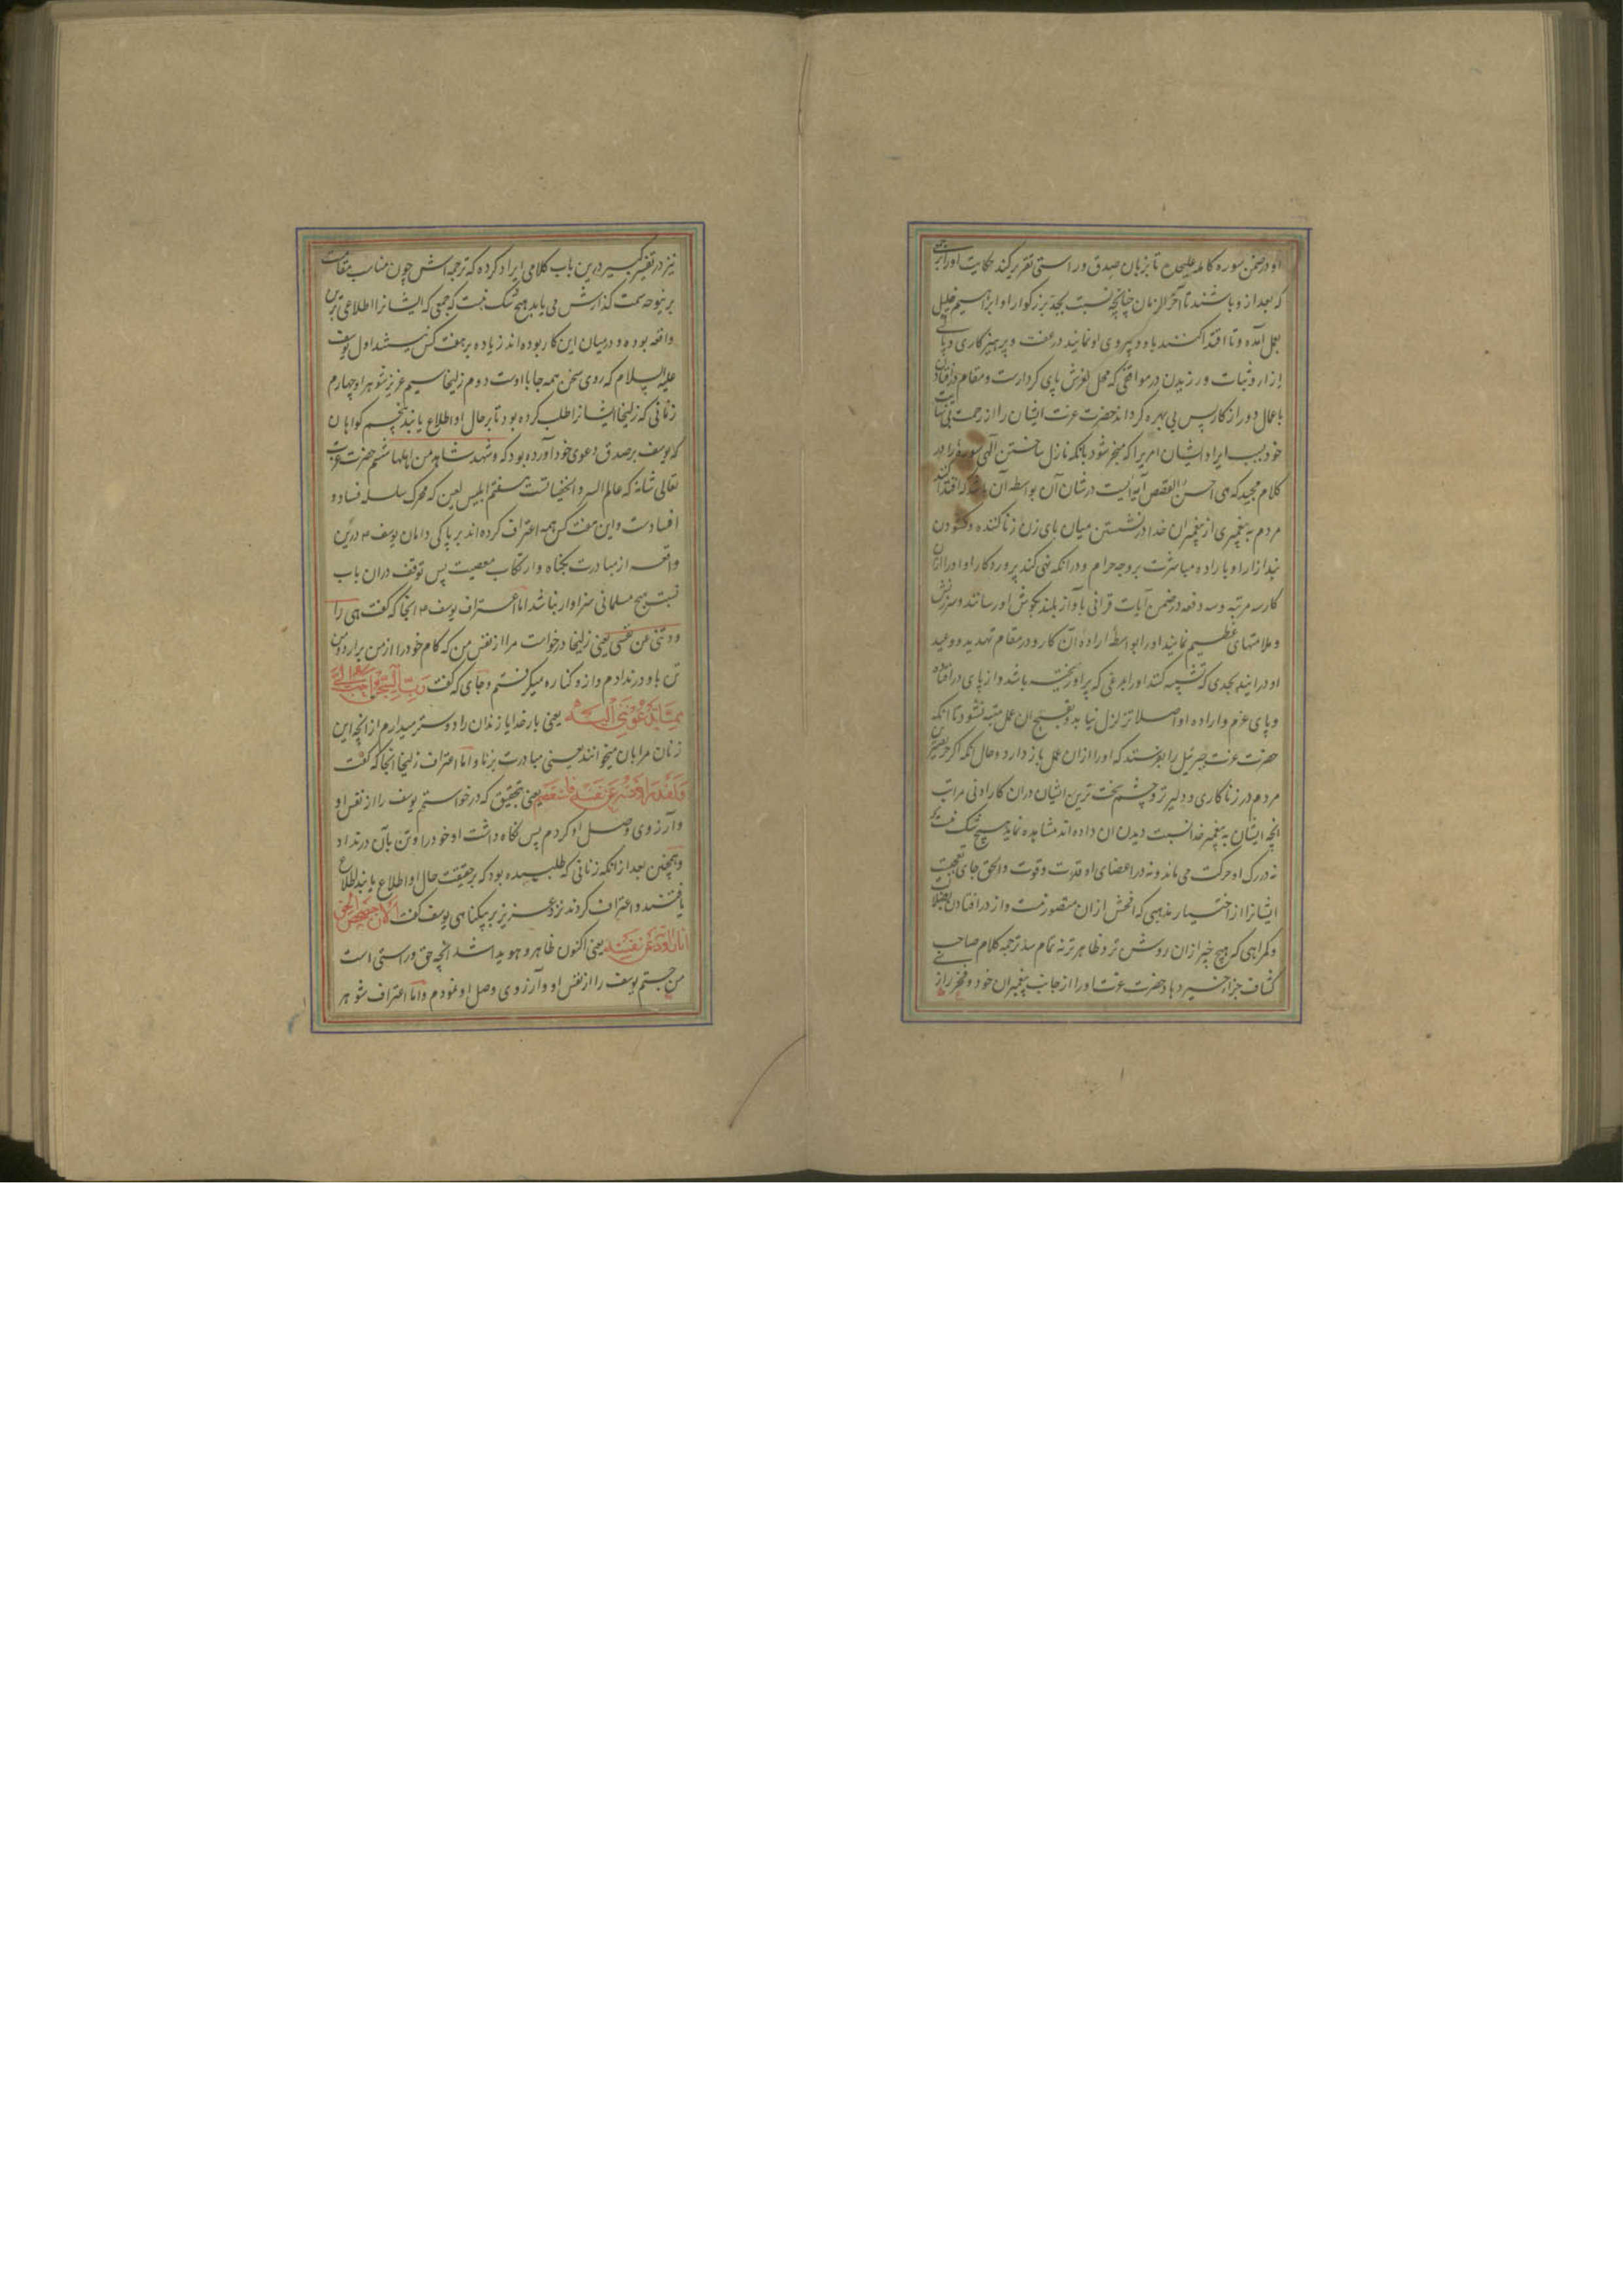 او در ضمن سوره کامله علیحده تا بزبان صدق و راستی تقریر کند حکایت او را برای جمعی
که بعد از و باشند تا آخر الزمان چنانچه نسبت بجد بزرگوار او ابراهیم خلیل
بعمل آمده و تا اقتدا کنند باو و پیروی او نمایند در عفت و پرهیزکاری و پاکی
ازار و ثبات ورزیدن در مواقفی که محل لغزش پای کردارست و مقام در افتادن
باعمال دور از کار پس بی بهره کرداند حضرت عزت ایشان را از رحمت بی نهایت
خود بسبب ایراد ایشان امریرا که منجر شود بانکه نازل ساختن الهی سوره را در
کلام مجید که هی احسن القصص آیه ایست در شان آن بواسطه آن باشد که اقتدا کنند
مردم به پیغمبری از پیغمبران خدا در نشستن میان پای زن زنا کننده و کشودن
بند ازار او باراده مباشرت بروجه حرام و درانکه نهی کند پروردکار او او را ازان
کار سه مرتبه و سه دفعه در ضمن آیات قرانی بآواز بلند بکوش او رسانند و سرزنش
و ملامتهای عظیم نمایند او را بواسطه اراده آن کار و در مقام تهدید و وعید
او در ایند بحدی که تشبیه کنند او را بمرغی که پر او ریخته باشد و از پای در افتاده
و پای عزم و اراده او اصلا تزلزل نیابد و بقبیح ان عمل متنبه نشود تا انکه
حضرت عزت جبرئیل را بفرستد که او را از ان عمل باز دارد و حال انکه اگر حریص ترین
مردم در زناکاری و دلیرتر و چشم سخت ترین ایشان دران کار ادنی مراتب
انچه ایشان به پیغمبر خدا نسبت دیدن ان داده اند مشاهده نماید هیچ شک نیست که
نه در رک او حرکت می ماند و نه در اعضای او قدرت و قوت و الحق جای تعجبست
ایشانرا از اختیار مذهبی که افحش ازان متصور نیست و از در افتادن بضلالت
و کمراهی که هیچ چیز ازان روشن تر و ظاهرتر نه تمام شد ترجمه کلام صاحب
کشاف جزاء خیر دهاد حضرت عزت او را از جانب پیغمبران خود و فخر رازی
نیز در تفسیر کبیر درین باب کلامی ایراد کرده که ترجمه اش چون مناسب مقامست
برینوجه سمت کذارش می یابد هیچ شک نیست که جمعی که ایشانرا اطلاعی برین
واقعه بوده و در میان این کار بوده اند زیاده بر هفت کس نیستند اول یوسف
علیه السلام که روی سخن همه جا با اوست دوم زلیخا سیم عزیز شوهر او چهارم
زنانی که زلیخا ایشانرا طلب کرده بود تا بر حال او اطلاع یابند پنجم کواهان
که یوسف بر صدق دعوی خود آورده بود که وشهد شاهد من اهلها ششم حضرت عزت
تعالی شانه که عالم السر و الخفیاتست هفتم ابلیس لعین که محرک سلسله فساد و
افسادست و این هفت کس همه اعتراف کرده اند بر پاکی دامان یوسف ع درین
واقعه از مبادرت بکناه و ارتکاب معصیت پس توقف دران باب
نسبت بهیچ مسلمانی سزاوار نباشد اما اعتراف یوسف ع انجا که کفت هی را
ودتنی عن نفسی یعنی زلیخا درخواست مرا از نفس من که کام خود را از من برارد و من
تن باو در ندادم و از و کناره میکرفتم و جای که کفت رب السجن احب الی
مما یدعوننی الیه یعنی بار خدایا زندان را دوستر میدارم از انچه این
زنان مرا بان میخوانند یعنی مبادرت بزنا و اما اعتراف زلیخا انجا که کفت
ولقد راودته عن نفسه فاستعصم یعنی بتحقیق که درخواستم یوسف را از نفس او
و آرزوی وصل او کردم پس نکاه داشت او خود را و تن بآن در نداد
و همچنین بعد از انکه زنانی که طلبیده بود که بر حقیقت حال او اطلاع یابند اطلاع
یافتند و اعتراف کردند نزد عزیز بر بیکناهی یوسف کفت الان حصحص الحق
انا راودته عن نفسه یعنی اکنون ظاهر و هویدا شد انچه حق و راستی است
من جستم یوسف را از نفس او و آرزوی وصل او نمودم و اما اعتراف شوهر